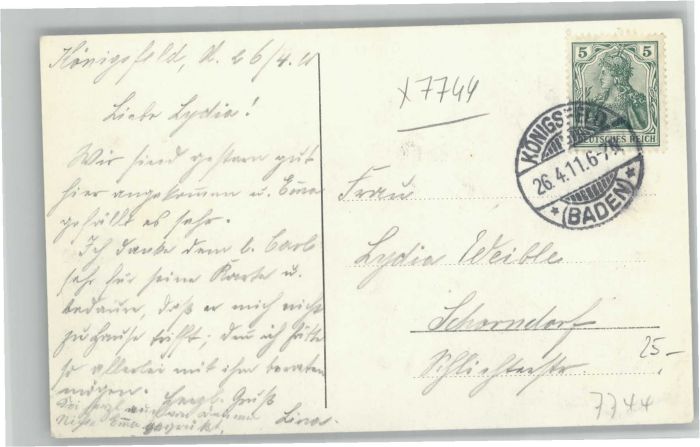 Königsfeld, d. 26/4.11
Liebe Lydia!
Wir sind gestern gut
hier angekommen u. Emma
gefällt es sehr.
Ich danke dem l. Carl
sehr für seine Karte u.
bedaure, daß er mich nicht
zuhause trifft; den ich hätte
so allerlei mit ihm beraten
mögen.
Herzl. Gruß
Lina.
Sei herzl. von
Nichte Emma gegrüßt.
x7744
5 5
DEUTSCHES REICH
KÖNIGSFELD
26.4.11.6-7.N.
* (BADEN) *
Frau
Lydia Weible
Schorndorf
Schlichterstr.
25,-
7744